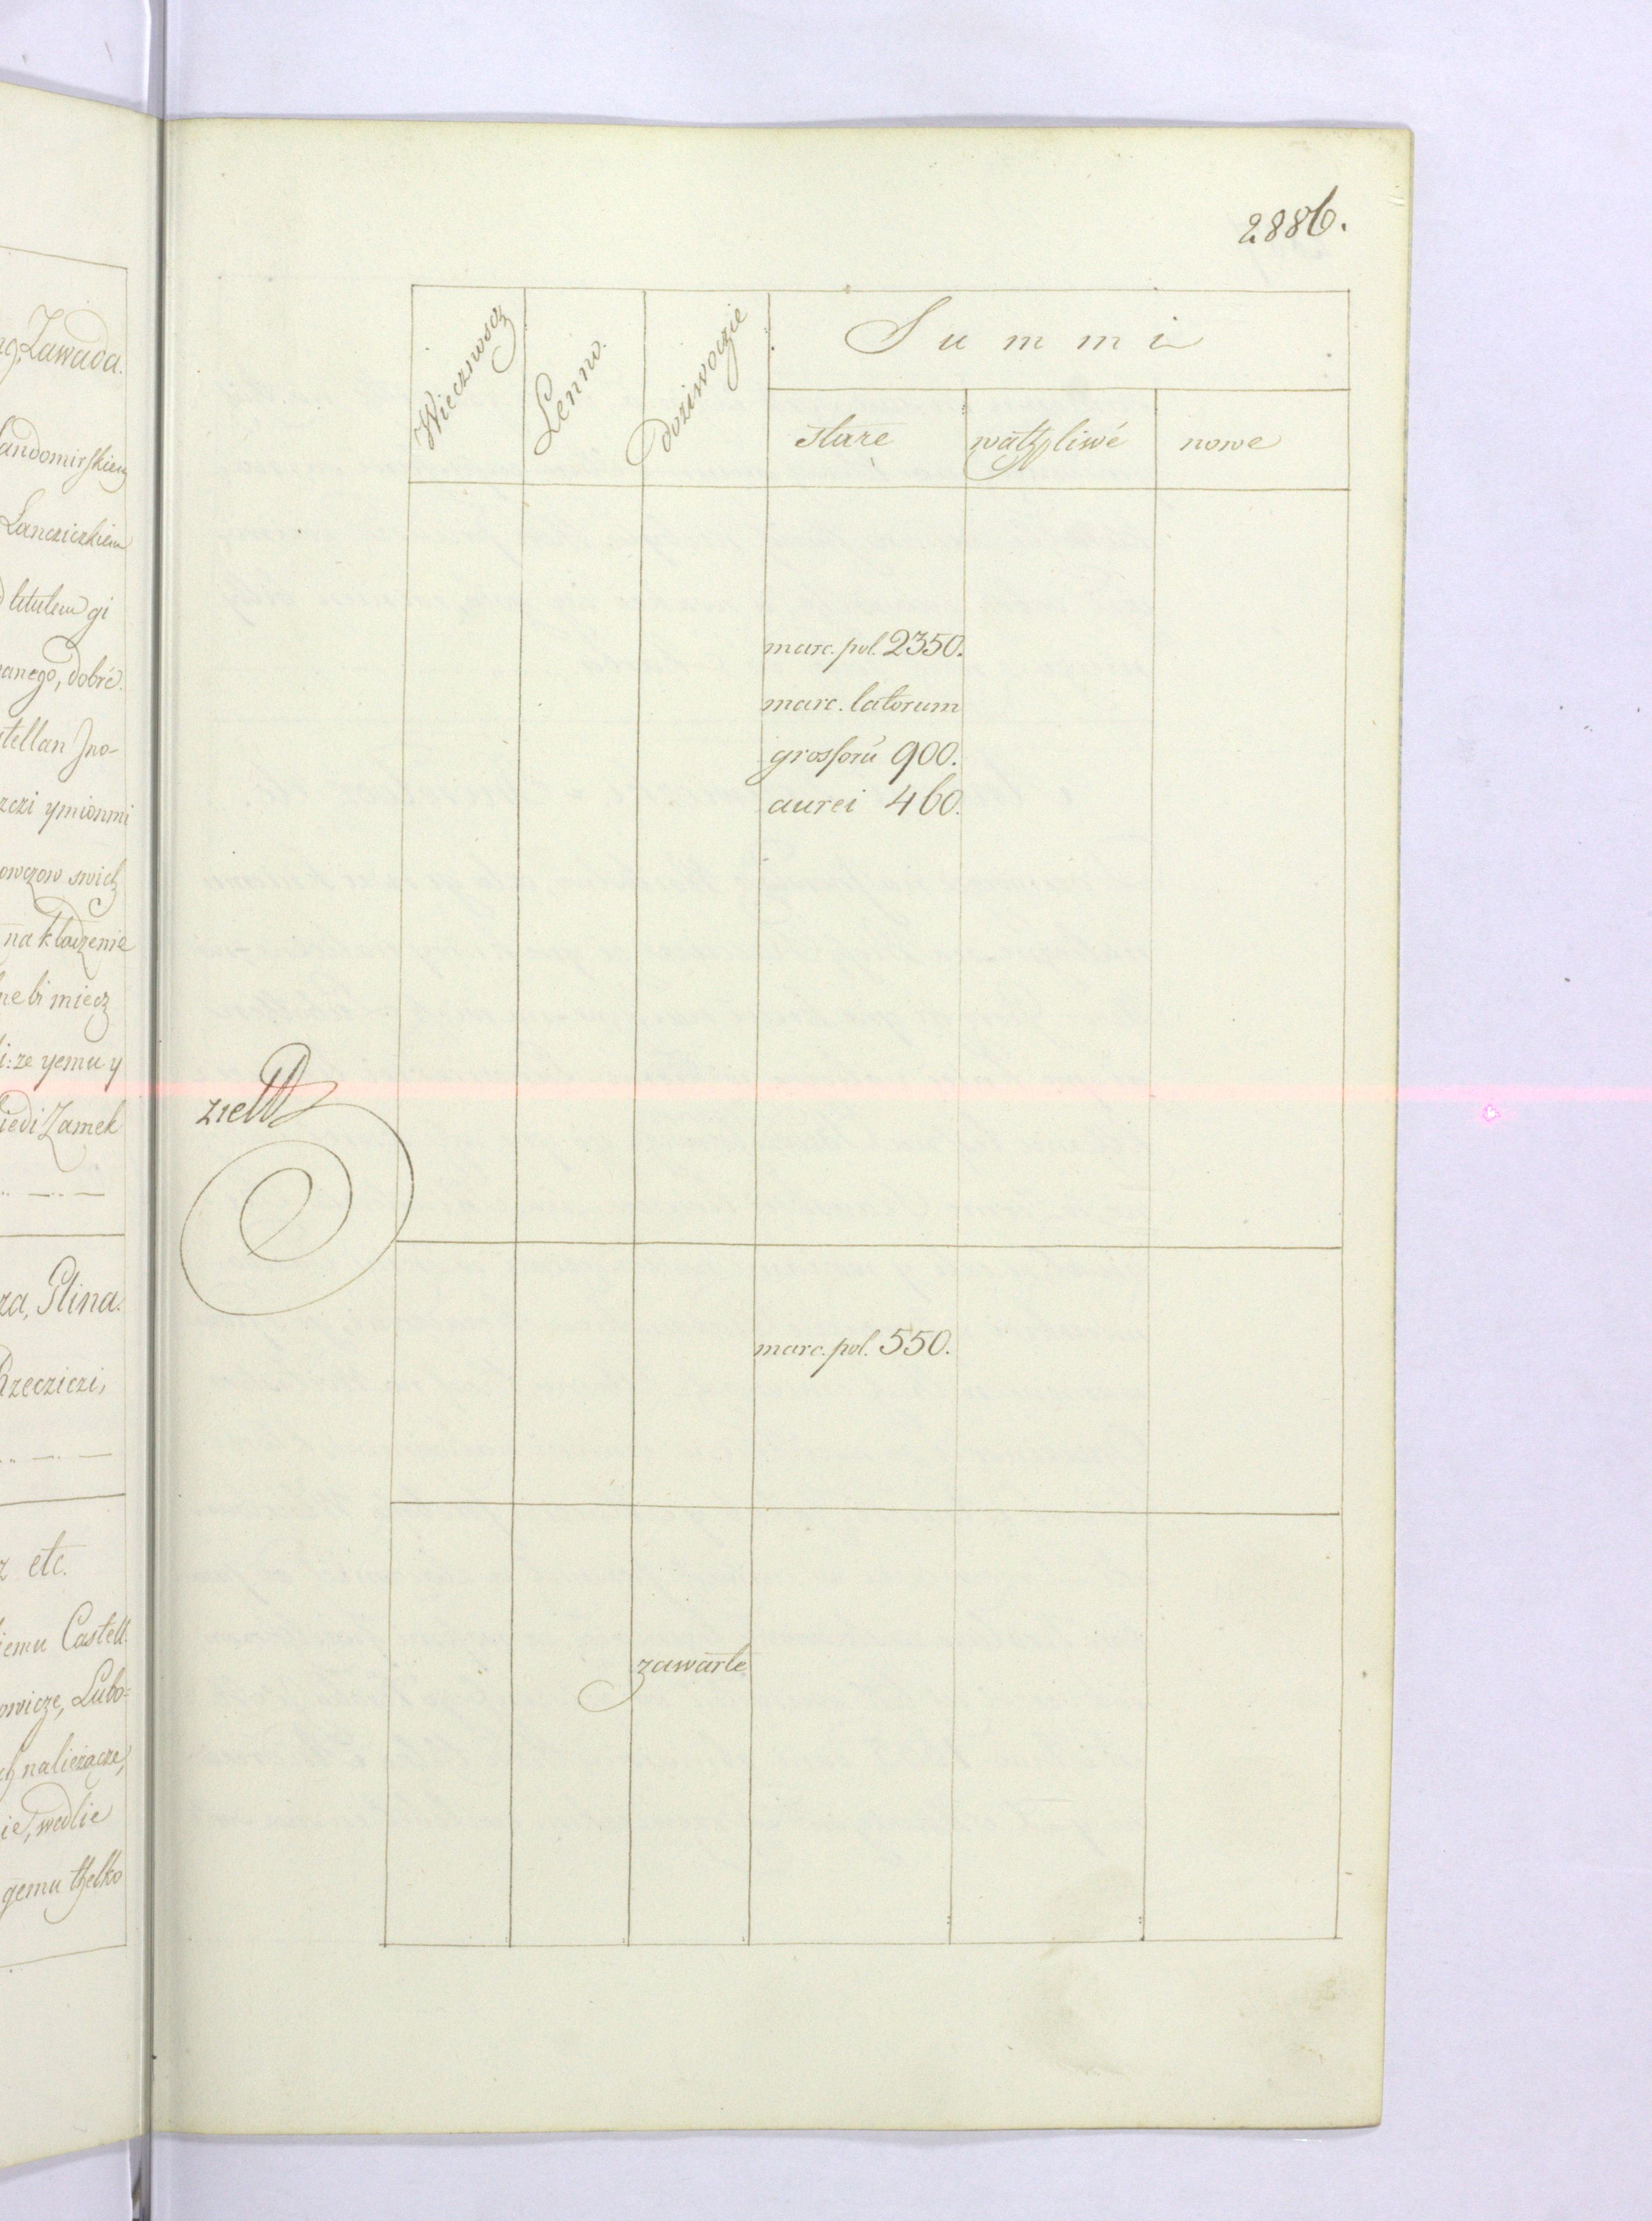 Zawada.
Landomirskiem
Lancziczkiem
titulem gi
anego, dobré
stellan Jno-
rzczi ymionmi
owczow swich
na kładzenie
ne bi miecz
i: ze yemu y
iedi Zamek
za, Plina.
Rzecziczi,
etc.
iemu Castell.
owicze, Lubo=
naliezacze,
ie, wedlie
gemu thelko
2886.
Wiecznoscz
Lenno.
doziwoczie
Summi
stare
wathpliwé
nowe
marc. pol. 2350.
marc. latorum
grossorū 900.
aurei 460.
zield
marc. pol. 550.
zawarte